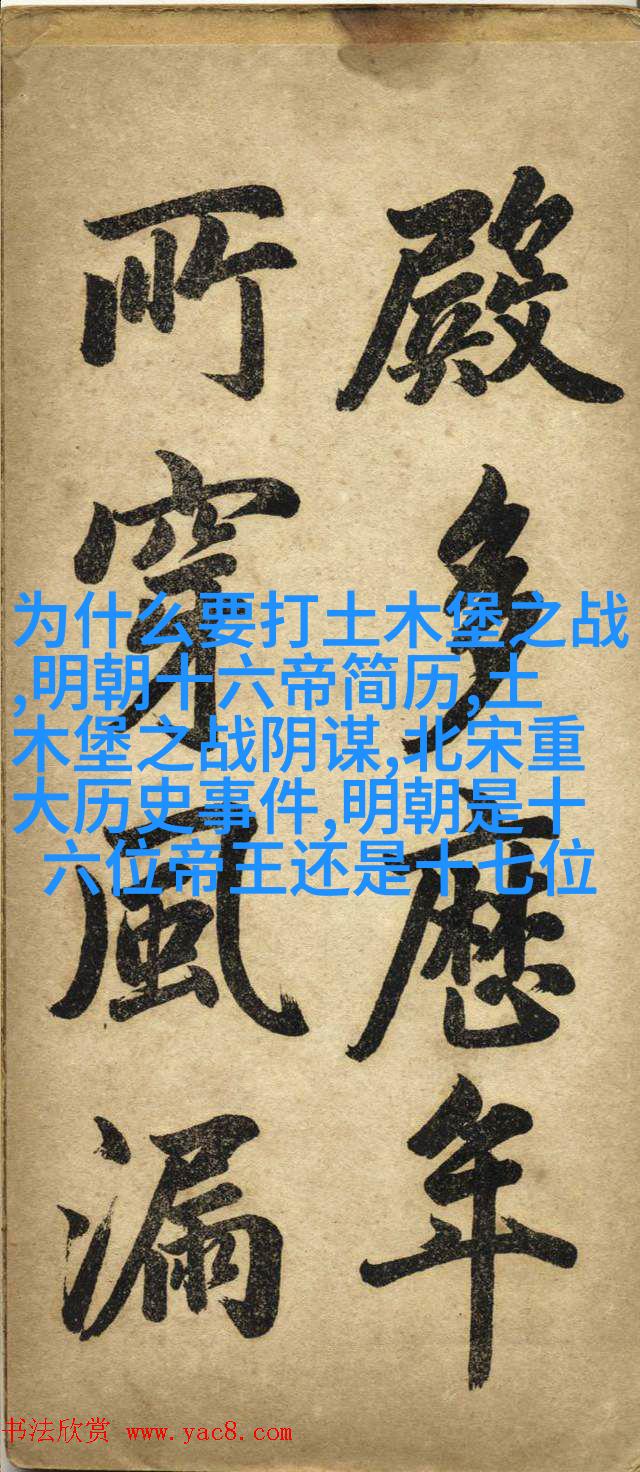 殿多歷年
所穿風漏
为什么要打土木堡之战
,明朝十六帝简历,土
木堡之战阴谋,北宋重
大历史事件,明朝是十
六位帝王还是十七位
书法欣赏 www.yac8.com